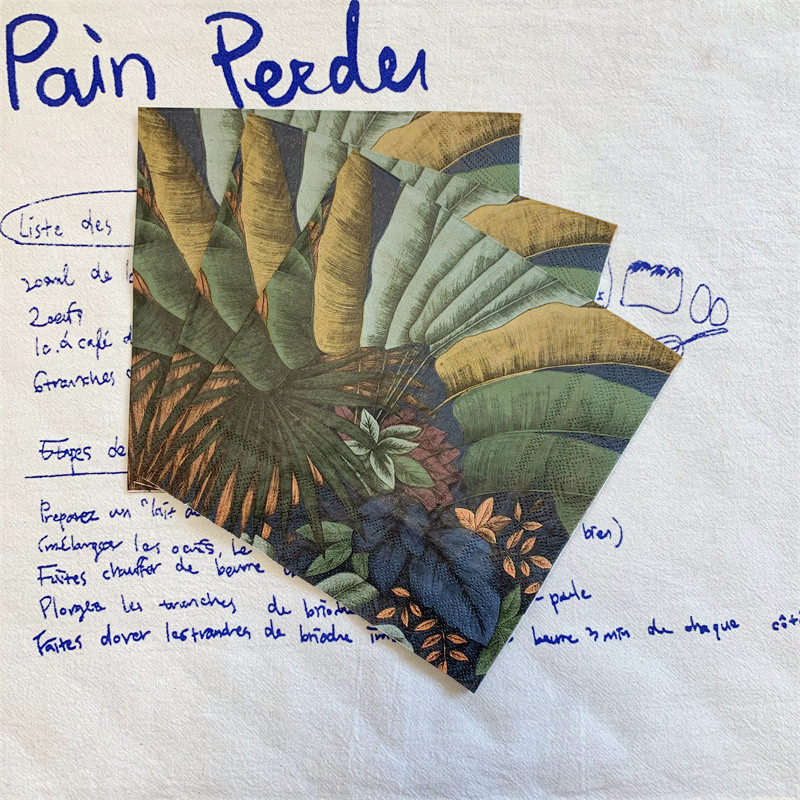 Pain Perdu
Liste des
200ml de
2 oeufs
1c. à café d
6 tranches
Etapes de
Preparez un "lait de
(mélanger les oeufs, le bien)
Faites chauffer de beurre
Plongez les tranches de brioche -poele
Faites dorer les tranches de brioche beurre 3 min de chaque côt